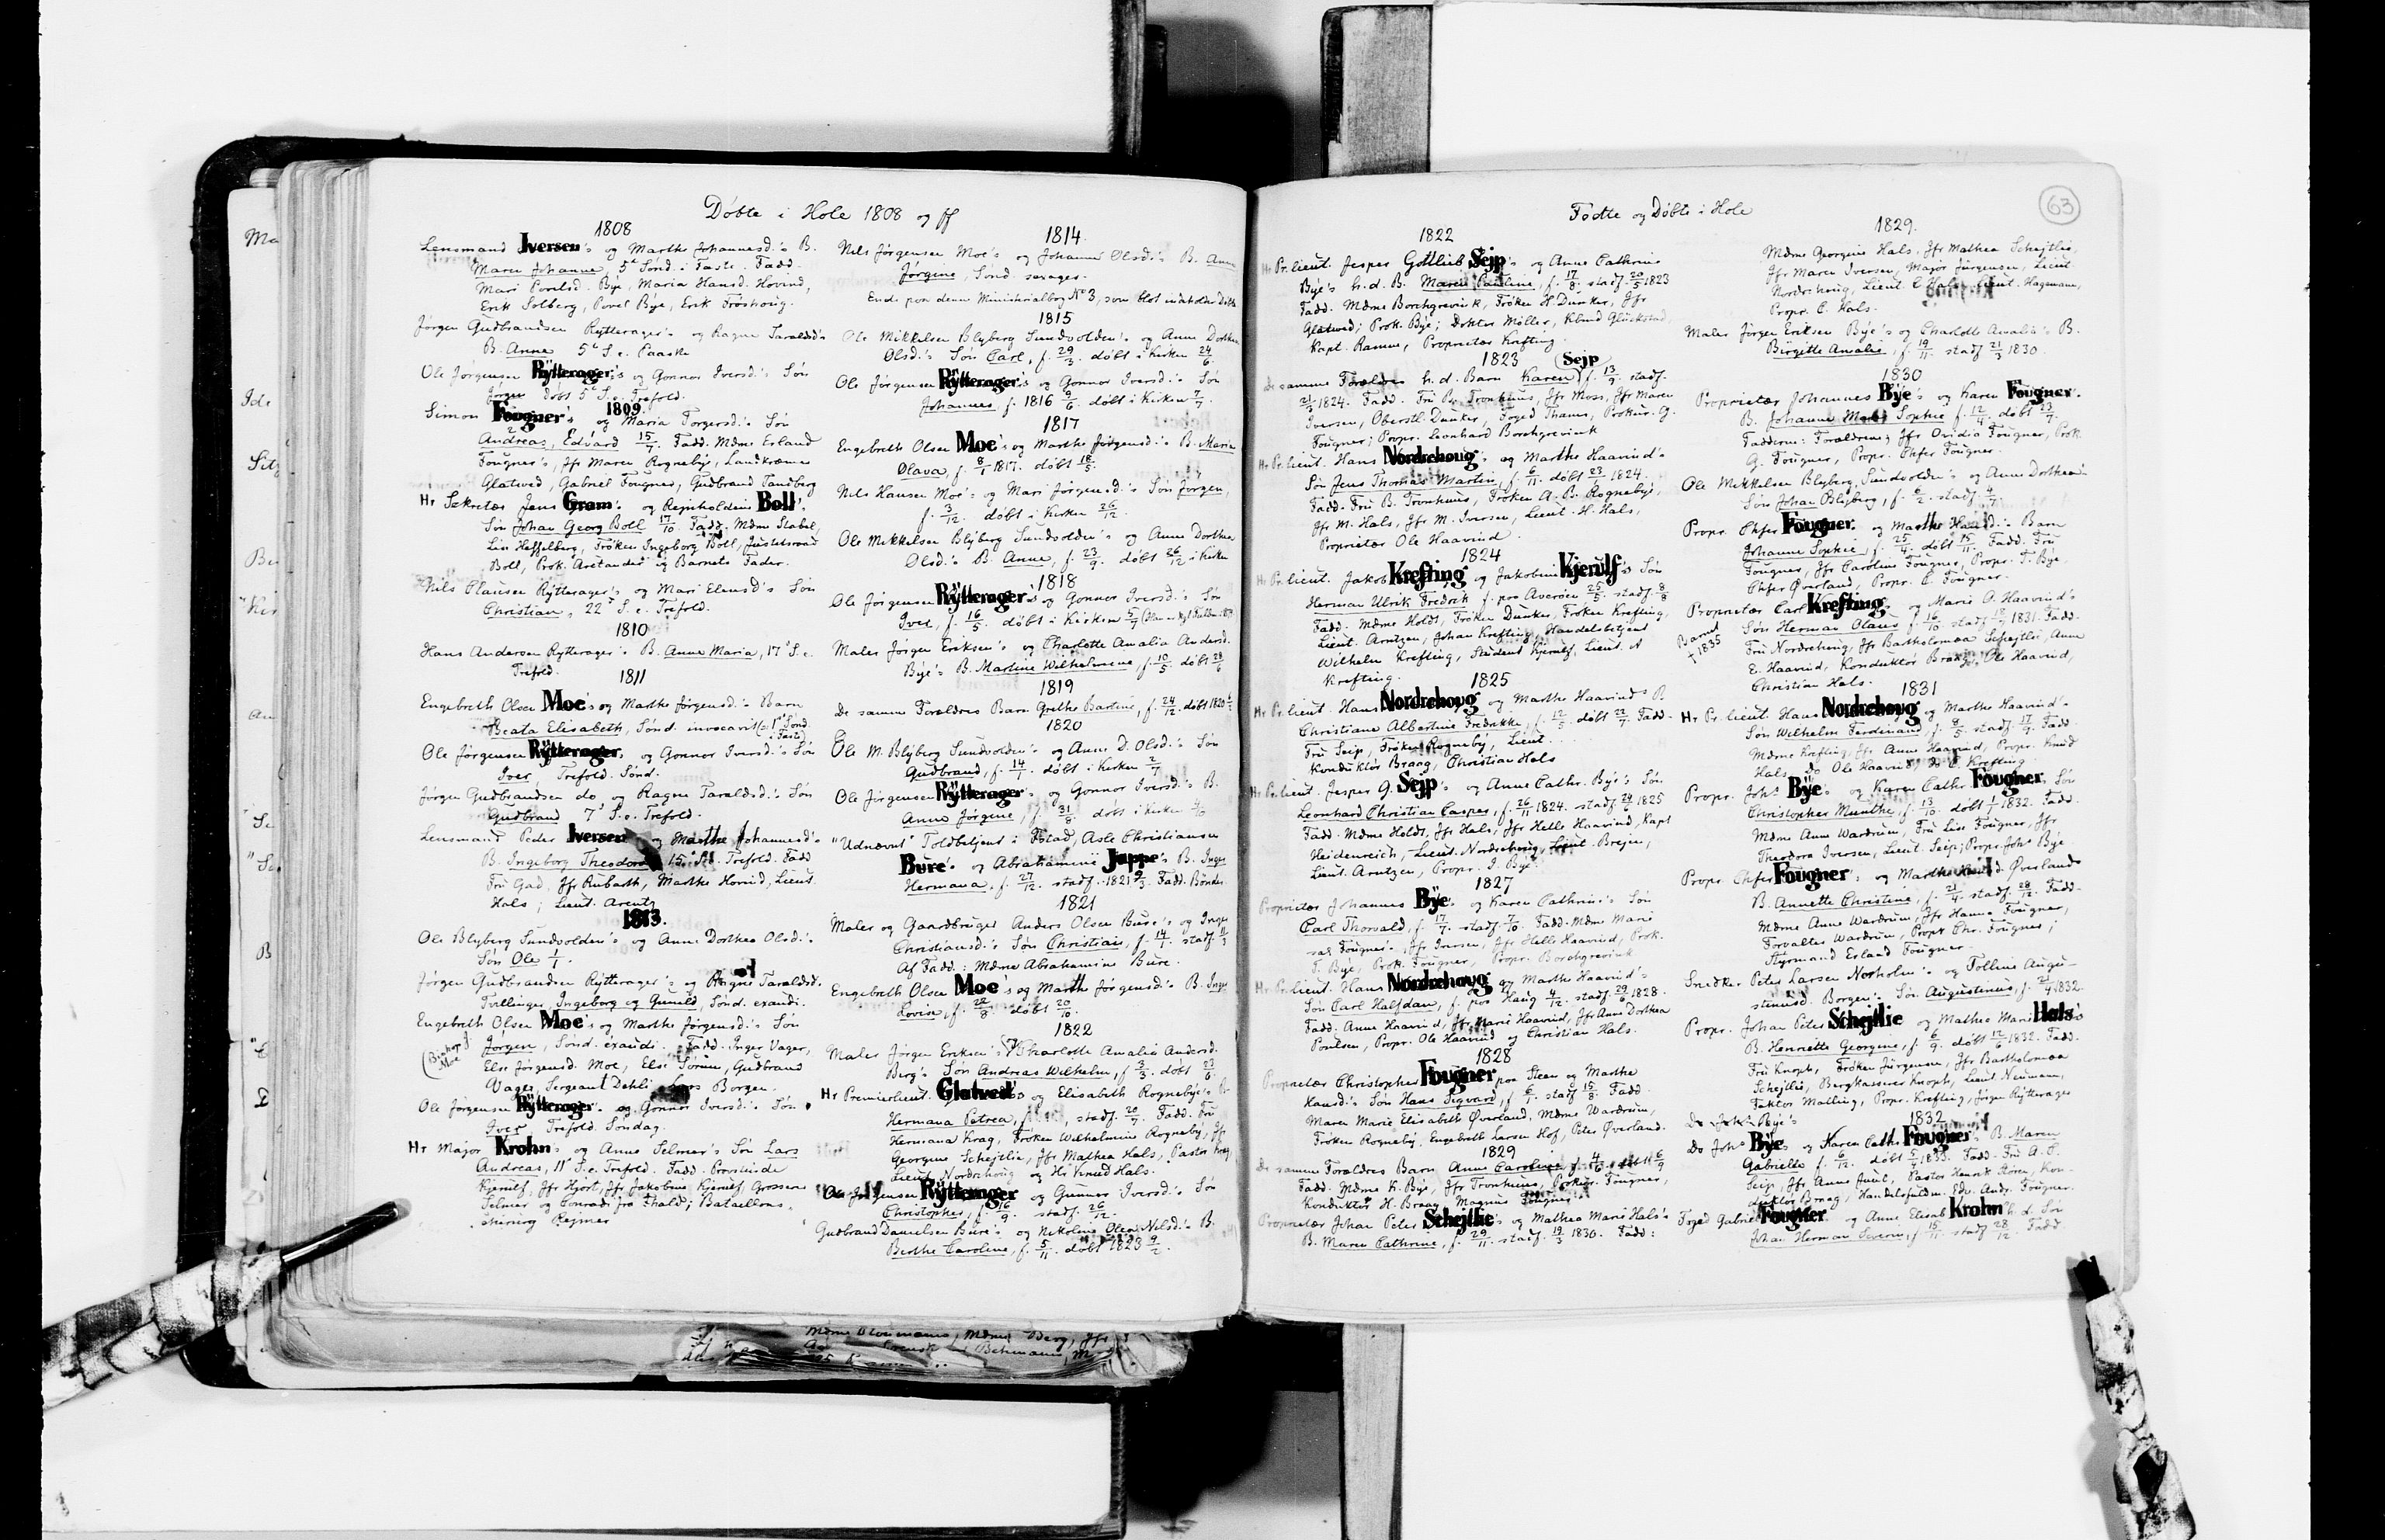 Døbte i Hole 1808 og ff
1808
Lensmand Iversen's og Marthe Johannesd.'s B.
Maren Johanne, 5te Sønd. i Faste. Fadd.
Mari Povelsd. Bye, Maria Hansd. Hovind,
Erik Solberg, Povel Bye, Erik Frøshoug.
Jørgen Gudbrandsen Rytterager's og Ragne Taraldsd's
B. Anne 5te S. e. Paaske
Ole Jørgensen Rytterager's og Gonnor Iversd.'s Søn
Jørgen døbt 5te S. e. Trefold.
1809.
Simon Fougner's og Maria Torgersd.'s Søn
Andreas, Edvard 15/7. Fadd. Mdme Erland
Fougner's, Jfr Maren Rognebye, Landkræmer
Glatved, Gabriel Fougner, Gudbrand Sandberg
Hr Sekretær Jens Gram's og Reinholdine Boll's
Søn Johan Georg Boll 17/10. Fadd. Mdme Stabel,
Lise Hesselberg, Frøken Ingeborg Boll, Justitsraad
Boll, Prok. Arctander og Barnets Fader.
Nils Clausen Rytterager's og Mari Elensd's Søn
Christian, 22de S. e. Trefold.
1810
Hans Andersen Rytterager's B. Anne Maria, 17de S. e.
Trefold.
1811
Engebreth Olsen Moe's og Marthe Jørgensd.'s Barn
Beata Elisabeth, Sønd. invocavit (o: 1ste Sønd. i Faste)
Ole Jørgensen Rytterager's og Gonnor Iversd.'s Søn
Iver, Trefold. Sønd.
Jørgen Gudbrandsen do og Ragne Taraldsd.'s Søn
Gudbrand 7de S. e. Trefold.
Lensmand Peder Iversen og Marthe Johannesd's
B. Ingeborg Theodora 15de S. e. Trefold. Fadd
Fru Gad, Jfr Rubarth, Marthe Hovind, Lieut.
Hals; Lieut. Arentz
1813.
Ole Blyberg Sundvolden's og Anne Dorthea Olsd.'s
Søn Ole 1/1.
Jørgen Gudbrandsen Rytterager's og Ragne Taraldsd.
Tvillinger, Ingeborg og Gunild, Sønd. exaudi.
Engebreth Olsen Moe's og Marthe Jørgensd.'s Søn
(Biskop J. Moe) Jørgen, Sønd. exaudi. Fadd. Inger Vager,
Else Jørgensd. Moe, Else Sørum, Gudbrand
Vager, Sergeant Dehli Borgen.
Ole Jørgensen Rytterager's og Gonnor Iversd.'s Søn
Iver, Trefold. Søndag.
Hr Major Krohn's og Anne Selmer's Søn Lars
Andreas, 11te S. e. Trefold. Fadd. Provstinde
Kjerulf, Jfr Hjort, Jfr Jakobine Kjerulf, Grosserer
Selmer og Conradi fra Thald; Bataillons-
chirurg Rejmer
1814
Nils Jørgensen Moe's og Johanne Olsd.'s B. Anne
Jørgine, Sønd. sexages.
Ende paa denne Ministerialbog No 3, som blot indeholder Døbte
1815
Ole Mikkelsen Blyberg Sundvolden's og Anne Dorthea
Olsd.'s Søn Carl, f. 29/3. døbt i Kirken 24/6.
Ole Jørgensen Rytterager's og Gonnor Iversd.'s Søn
Johannes f. 1816 9/6. døbt i Kirken 7/7.
1817
Engebreth Olsen Moe's og Marthe Jørgensd.'s B. Maria
Olava, f. 8/1 1817. døbt 18/5.
Nils Hansen Moe's og Mari Jørgensd.'s Søn Jørgen,
f. 3/12. døbt i Kirken 26/12.
Ole Mikkelsen Blyberg Sundvolden's og Anne Dorthea
Olsd.'s B. Anne, f. 23/9. døbt 26/12 i Kirken
1818
Ole Jørgensen Rytterager's og Gonnor Iversd.'s Søn
Iver, f. 16/5. døbt i Kirken 5/7
Maler Jørgen Eriksen's og Charlotte Amalia Andersd.
Bye's B. Martine Wilhelmine f. 10/5 døbt 28/6
1819
De samme Forældres Barn Grethe Bartine, f. 24/12. døbt 1820
1820
Ole M. Blyberg Sundvolden's og Anne D. Olsd.'s Søn
Gudbrand, f. 14/1. døbt i Kirken 2/7
Ole Jørgensen Rytterager's og Gonnor Iversd.'s B.
Anne Jørgine, f. 31/8. døbt i Kirken
"Udnævnt" Toldbetjent i Ystad, Asle Christiansen
Bure's og Abrahamine Juppe's B. Inger
Hermana, f. 27/12. stadf. 1821 9/3. Fadd. Bønder.
1821
Maler og Gaardbruger Anders Olsen Bure's og Inger
Christiansd.'s Søn Christian, f. 14/1. stadf. 11/3
Af Fadd.: Mdme Abrahamine Bure.
Engebreth Olsen Moe's og Marthe Jørgensd.'s B. Inger
Lovise, f. 28/8 døbt 20/10.
1822
Maler Jørgen Eriksen's og Charlotte Amalia Andersd.
Berg's Søn Andreas Wilhelm, f. 3/3. døbt 23/6.
Hr Premierlieut. Glatved's og Elisabeth Rognebye's B.
Hermana Petrea, stadf. 20/7. Fadd. Fru
Hermana Krag, Frøken Wilhelmine Rognebye, Jfr
Georgine Schejtlie, Jfr Mathea Hals, Pastor Krag,
Lieut. Nordrehoug og Hr Knud Hals.
Ole Jørgensen Rytterager og Gunnor Iversd.'s Søn
Christopher, f. 16/9. stadf. 26/12.
Gudbrand Danielsen Bure's og Nikoline Olea Nilsd.'s B.
Berthe Caroline, f. 5/11. døbt 1823 9/2.
Fødte og Døbte i Hole
63
1822
Hr Pr. lieut. Jesper Gottlieb Sejp's og Anne Cathrine
Bye's h. d. B. Maren Pauline, f. 17/8. stadf. 20/5 1823
Fadd. Mdme Borchgrevink, Frøken H. Dunker, Jfr
Glatved; Prok. Bye; Doktor Møller, Kbmd Glückstad,
Kapt. Ramm, Proprietær Krefting
1823
De samme Forældres h. d. Barn Karen (Sejp) f. 13/9. stadf.
21/3 1824. Fadd. Fru B. Tronhuus, Jfr Moss, Jfr Maren
Iversen, Oberstl. Dunker, Foged Thams, Prokur. G.
Fougner; Propr. Leonhard Borchgrevink
Hr Pr. lieut. Hans Nordrehoug's og Marthe Haavind's
Søn Jens Thomas Martin, f. 6/11. døbt 23/1 1824.
Fadd. Fru B. Tronhuus, Frøken A. B. Rognebye,
Jfr M. Hals, Jfr M. Iversen, Lieut. H. Hals,
Proprietær Ole Haavind.
1824
Hr Pr. lieut. Jakob Krefting og Jakobine Kjerulf's Søn
Herman Ulrik Fredrik f. paa Averøen 25/5 stadf. 8/8
Fadd. Mdme Holdt, Frøken Dunker, Frøken Krefting,
Lieut. Arntzen, Johan Krefting, Handelsbetjent
Wilhelm Krefting, Student Kjerulf, Lieut. A
Krefting.
1825
Hr Pr. lieut. Hans Nordrehoug og Marthe Haavind's B
Christiane Albertine Fredrikke, f. 12/5. døbt 22/7. Fadd.
Fru Seip, Frøken Rognebye, Lieut. . . . .
Konduktør Braag, Christian Hals
Hr Pr. lieut. Jesper G. Sejp's og Anne Cathr. Bye's Søn
Leonhard Christian Casper, f. 26/11 1824. stadf. 24/6 1825
Fadd. Mdme Holdt, Jfr Hals, Jfr Helle Haavind, Kapt
Heidenreich, Lieut. Nordrehoug, Lieut. Brejen,
Lieut. Arntzen, Propr. J. Bye.
1827
Proprietær Johannes Bye's og Karen Cathrine's Søn
Carl Thorvald, f. 17/7. stadf. 7/10. Fadd. Mdme Mari
sal. Fougner's, Jfr Iversen, Jfr Helle Haavind, Prok.
T. Bye, Prok. Fougner, Propr. Borchgrevink
Hr Pr. lieut. Hans Nordrehoug og Marthe Haavind's
Søn Carl Halfdan, f. paa Haug 4/12. stadf. 29/6 1828.
Fadd. Anne Haavind, Jfr Marie Haavind, Jfr Anne Dorthea
Poulsen, Propr. Ole Haavind og Christian Hals.
1828
Proprietær Christopher Fougner paa Steen og Marthe
Hansd.'s Søn Hans Sigvard, f. 6/1. stadf 15/8. Fadd
Maren Marie Elisabeth Øverland, Mdme Wardrum,
Frøken Rognebye, Engebreth Larsen Hof, Peter Øverland.
1829
De samme Forældres Barn Anne Caroline f. 4/10. døbt 6/9
Fadd. Mdme K. Bye, Jfr Tronhuus, Prokur. Fougner,
Konduktør H. Braag, Magnus Fougner.
Proprietær Johan Peter Schejtlie's og Mathea Marie Hals's
B. Maren Cathrine, f. 29/11. stadf. 19/3 1830. Fadd:
1829.
Mdme Georgine Hals, Jfr Mathea Schejtlie,
Jfr Maren Iversen, Major Jürgensen, Lieut.
Nordrehoug, Lieut. C Hals, Lieut. Hagemann,
Propr. C. Hals.
Maler Jørgen Eriksen Bye's og Charlotte Amalia's B.
Birgitte Amalie, f. 19/11. stadf 21/3 1830.
1830
Proprietær Johannes Bye's og Karen Fougner's
B. Johanne Sophie f. 12/4. døbt 23/7.
Fadderne: Forældrene; Jfr Ovidia Fougner, Prok.
G. Fougner, Propr. Chfer Fougner.
Ole Mikkelsen Blyberg Sundvolden's og Anne Dortheas
Søn Johan Blyberg, f. 6/2. stadf. 4/7.
Propr. Chfer Fougner og Marthe Hansd.'s Barn
Johanne Sophie, f. 25/4. døbt 15/11. Fadd. Fru
Fougner, Jfr Caroline Fougner, Propr. J. Bye
Chfer Øverland, Propr. E. Fougner.
Proprietær Carl Krefting og Marie O. Haavind's
Barnet † 1835
Søn Herman Olaus f. 16/10 stadf. 1831. Fadd.
Fru Nordrehoug, Jfr Bartholomæa Schejtlie, Anne
E. Haavind, Konduktør Braag, Ole Haavind,
Christian Hals.
1831
Hr Pr. lieut. Hans Nordrehoug og Marthe Haavind's
Søn Wilhelm Ferdinand, f. 8/5. stadf. 17/7. Fadd.
Mdme Krefting, Jfr Anne Haavind, Propr. Knud
Hals, Do Ole Haavind, Do C. Krefting
Propr. Johs Bye's og Karen Cathr. Fougner Søn
Christopher Munthe, f. 13/10 døbt 1/1 1832. Fadd.
Mdme Anne Wardrum, Fru Lise Fougner, Jfr
Theodora Iversen, Lieut. Seip; Propr. Johs Bye
Propr. Chfer Fougner's og Marthe Hansd. Øverland's
B. Annette Christine, f. 21/4. stadf. 28/12. Fadd.
Mdme Anne Wardrum, Jfr Hanna Fougner,
Forvalter Wardrum, Propr. Chr. Fougner;
Styrmand Erland Fougner.
Snedker Peter Larsen Norholm's og Tolline Augu-
stinusd. Borgen's Søn Augustinus, f. 1832.
Propr. Johan Peter Schejtlie og Mathea Marie Hals's
B. Henriette Georgine, f. 6/9. døbt 12/6 1832. Fadd.
Fru Knoph, Frøken Jürgensen, Jfr Bartholomæa
Schejtlie, Bergkasserer Knoph, Lieut. Neumann,
Faktor Malling, Propr. Krefting, Jørgen Rytterager
Do Johs Bye's
1832
Do Johs Bye's og Karen Cath. Fougner's B. Maren
Gabrielle f. 6/12. døbt 5/4 1833. Fadd. Fru A. C.
Seip, Jfr Anne Juul, Pastor Henrik Støren, Kon-
duktør Braag, Handelsfuldm. Edv. Andr. Fougner.
Foged Gabriel Fougner og Anne Elisab. Krohn h. d. Søn
Johan Herman Severin, f. 15/11. stadf 28/12. Fadd.